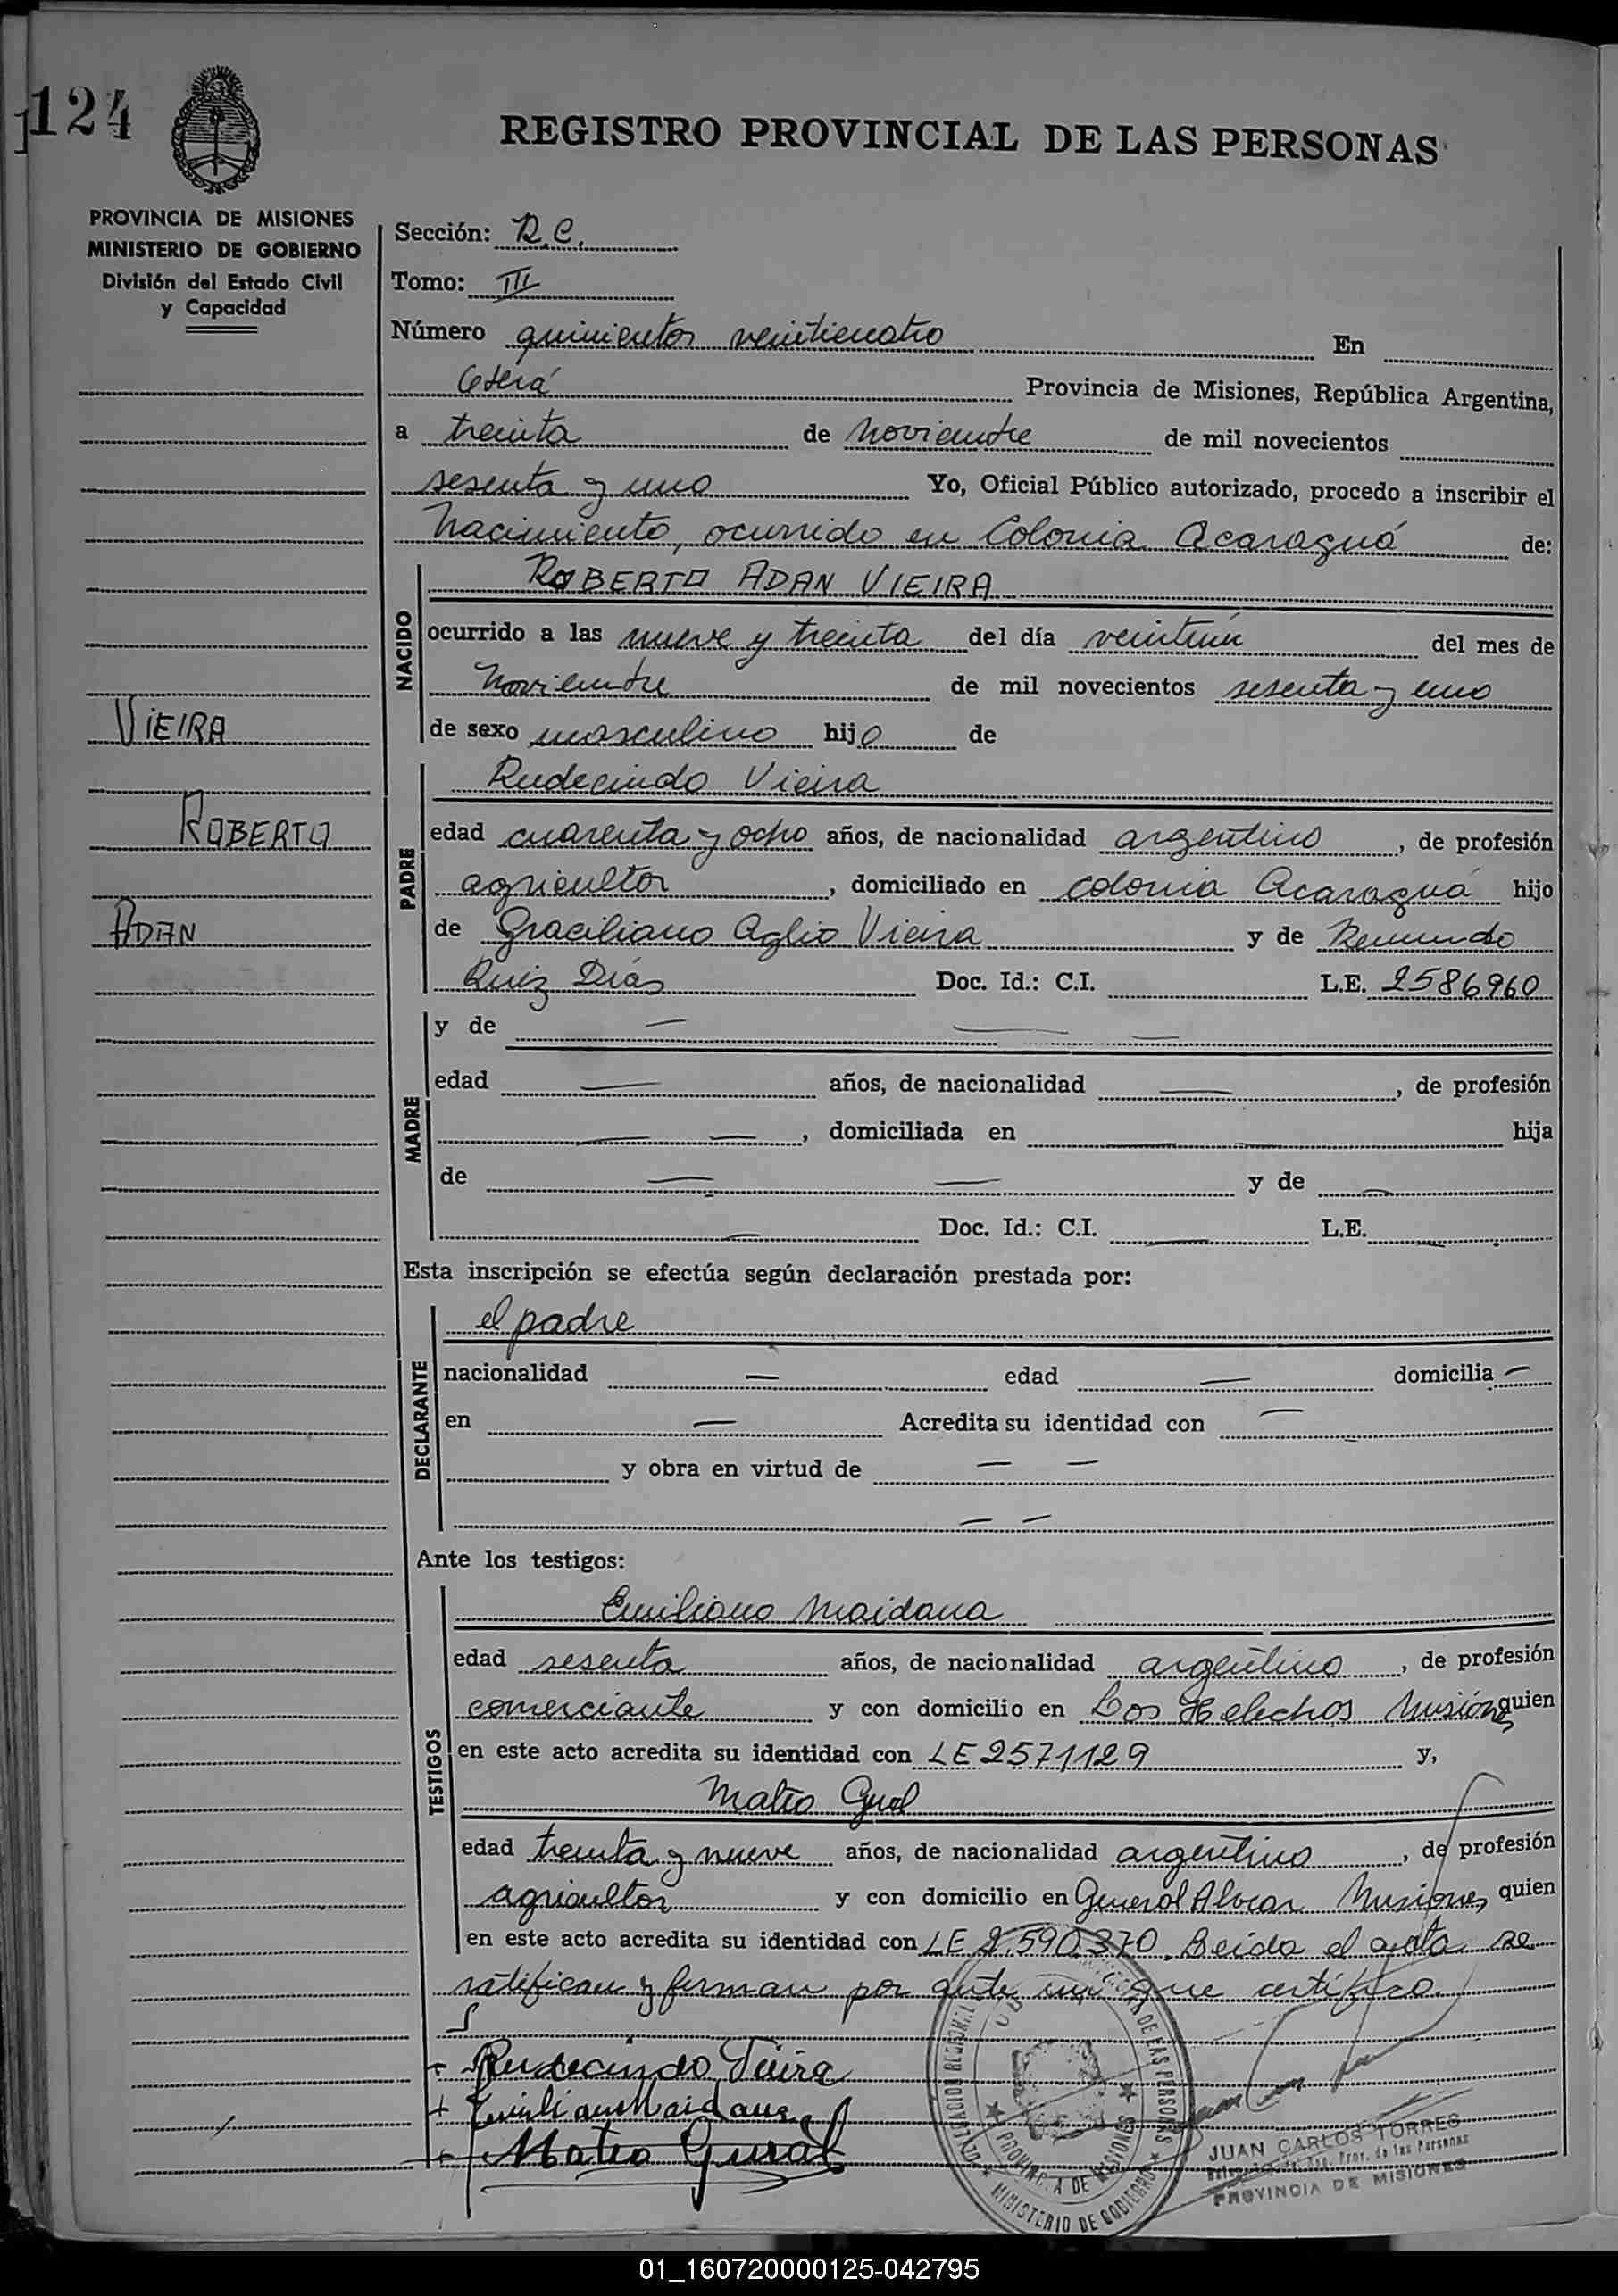 124
REGISTRO PROVINCIAL DE LAS PERSONAS
PROVINCIA DE MISIONES
MINISTERIO DE GOBIERNO
División del Estado Civil
y Capacidad
VIEIRA
ROBERTO
ADAN
Sección: R.C.
Tomo: III
Número quinientos veinticuatro En
Oberá Provincia de Misiones, República Argentina,
a treinta de noviembre de mil novecientos
sesenta y uno Yo, Oficial Público autorizado, procedo a inscribir el
nacimiento, ocurrido en Colonia Acaraguá de:
NACIDO
ROBERTO ADAN VIEIRA
ocurrido a las nueve y treinta del día veintiun del mes de
noviembre de mil novecientos sesenta y uno
de sexo masculino hijo de
PADRE
Rudecindo Vieira
edad cuarenta y ocho años, de nacionalidad argentino, de profesión
agricultor, domiciliado en colonia Acaraguá hijo
de Graciliano Aglio Vieira y de
Ruiz Días Doc. Id.: C.I. L.E. 2586960
MADRE
y de — — —
edad — años, de nacionalidad —, de profesión
— —, domiciliada en — — hija
de — — y de —
— Doc. Id.: C.I. — L.E. —
Esta inscripción se efectúa según declaración prestada por:
DECLARANTE
el padre
nacionalidad — edad — domicilia —
en — Acredita su identidad con —
y obra en virtud de — —
— —
Ante los testigos:
TESTIGOS
Emiliano Maidana
edad sesenta años, de nacionalidad argentino, de profesión
comerciante y con domicilio en Los Helechos Misiones quien
en este acto acredita su identidad con LE 2571129 y,
Mateo Gural
edad treinta y nueve años, de nacionalidad argentino, de profesión
agricultor y con domicilio en General Alvear Misiones quien
en este acto acredita su identidad con LE 2.590.370. Leida el acta se
ratifican y firman por ante mi que certifico.
Rudecindo Vieira
Emiliano Maidana
Mateo Gural
DELEGACION REGIONAL
DE LAS PERSONAS
PROVINCIA DE MISIONES
MINISTERIO DE GOBIERNO
JUAN CARLOS TORRES
Prov. de las Personas
PROVINCIA DE MISIONES
01_160720000125-042795